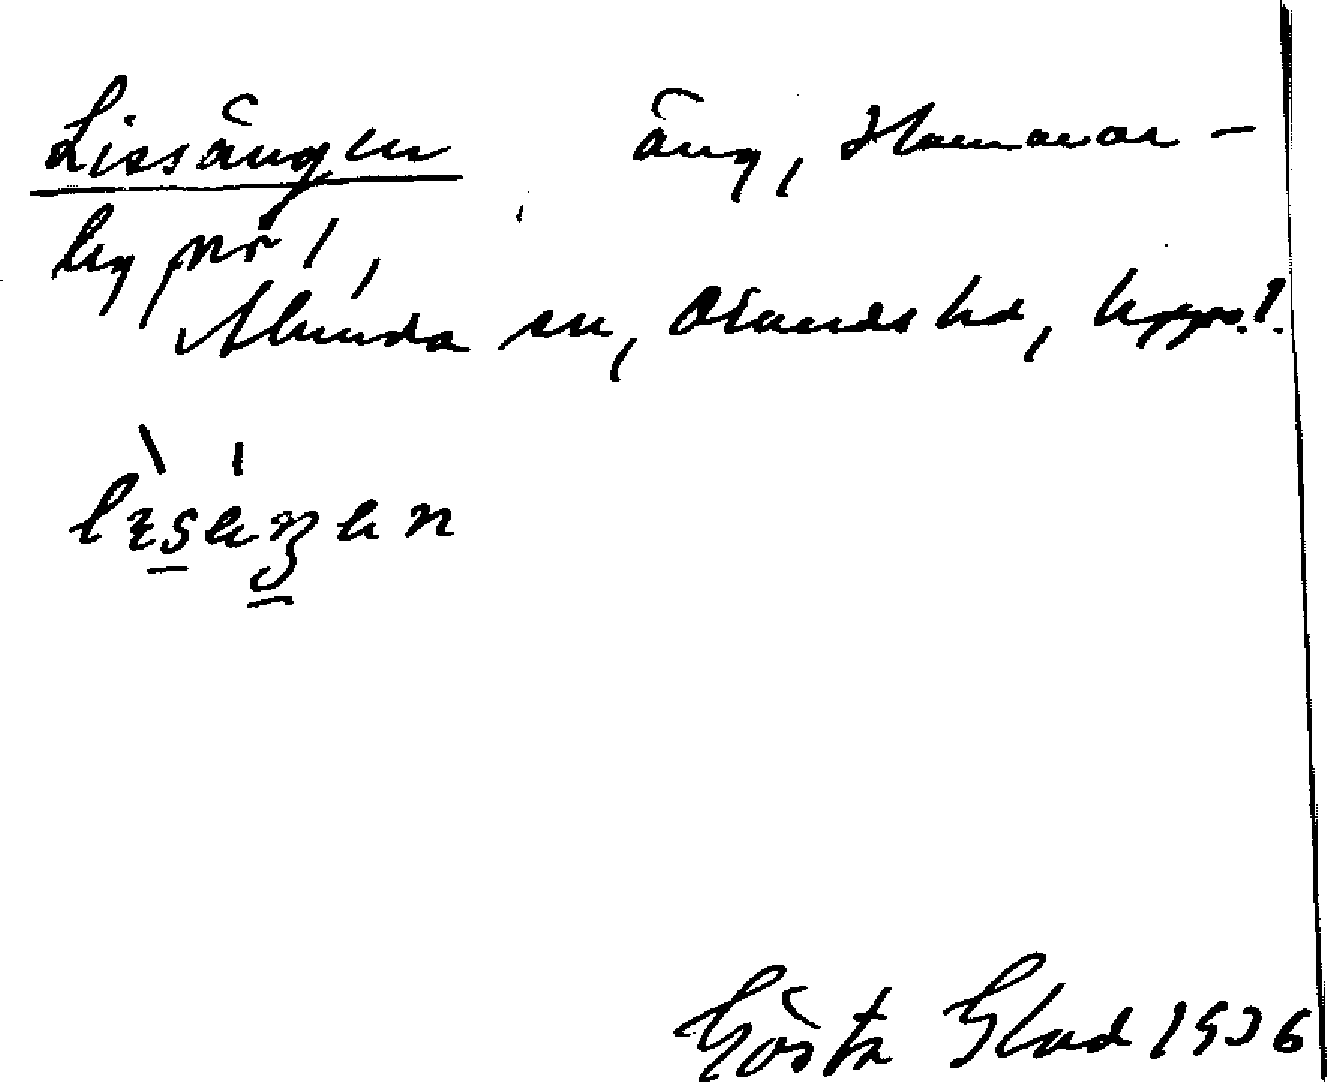 Lissängen äng, Hammar-
by nr 1,
Alunda sn, Olands hd, Upps. l.
Gösta Blad 1936